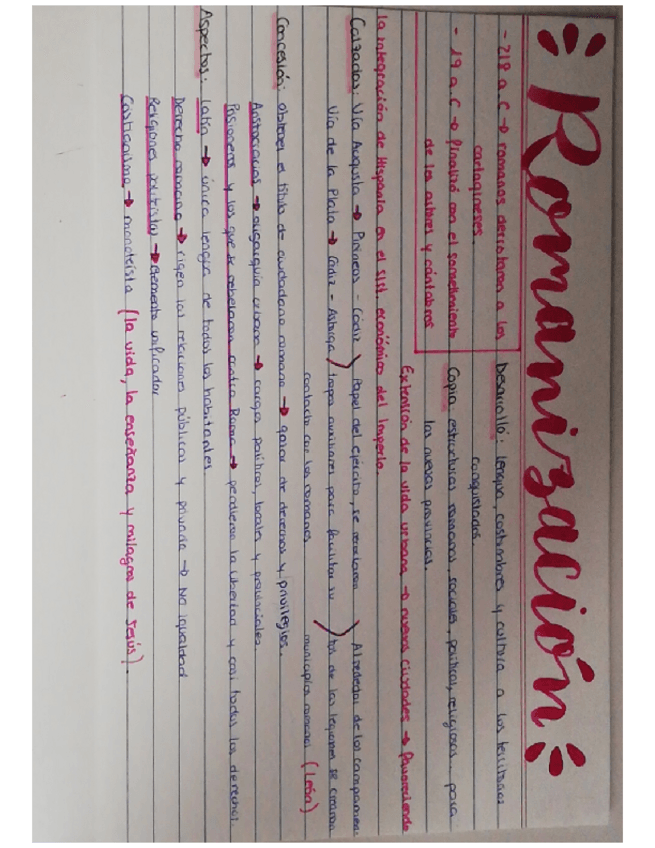 Romanización
- 218 a.C → romanos derrotaron a los
cartagineses.
- 19 a.C → finalizó con el sometimiento
de los astures y cántabros
Desarrolló: lengua, costumbres y cultura a los territorios
conquistados.
Copia: estructuras romanas sociales, políticas, religiosas... para
las nuevas provincias.
Extensión de la vida urbana → nuevas ciudades → favoreciendo
la integración de Hispania en el sist. económico del Imperio.
Calzadas: Vía Augusta → Pirineos - Cádiz
Vía de la Plata → Cádiz - Astorga
Papel del ejército, se reclutaron
tropas auxiliares para facilitar su
contacto con los romanos
Alrededor de los campamen-
tos de las legiones se crearon
municipios romanos (León)
Concesión: obtener el título de ciudadano romano → gozar de derechos y privilegios.
Aristocracias → oligarquía urbana → cargos políticos, locales y provinciales
Prisioneros y los que se rebelaron contra Roma → perdieron la libertad y casi todos los derechos.
Aspectos: Latín → única lengua de todos los habitantes
Derecho romano → rigen las relaciones públicas y privada → No igualdad
Religiones politistas → elemento unificador
Cristianismo → monoteísta (la vida, la enseñanza y milagros de Jesús).